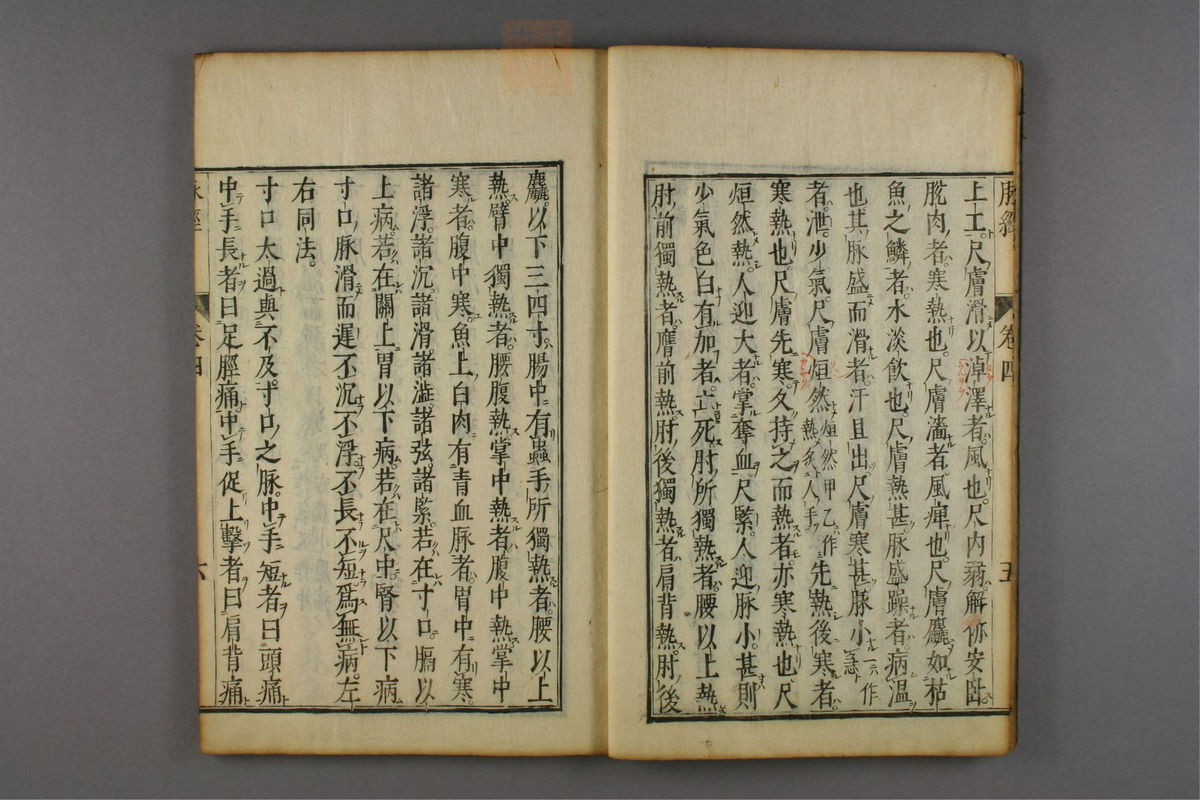 脉經 卷四 五
上工。尺膚滑以淖澤者。風也。尺內弱。解㑊安臥。
脫肉者。寒熱也。尺膚濇者。風痺也。尺膚麤如枯
魚之鱗者。水淡飲也。尺膚熱甚。脈盛躁者。病温
也其脈盛而滑者。汗且出。尺膚寒甚。脈小一ハ作急
者。泄。少氣。尺膚烜然烜然甲乙作熱炙人手先熱後寒者。
寒熱也。尺膚先寒。久持之而熱者。亦寒熱也尺
烜然熱。人迎大者。掌奪血。尺緊。人迎脈小。甚則
少氣色白有加者。亡死。肘所獨熱者。腰以上熱
肘前獨熱者。膺前熱。肘後獨熱者。肩背熱。肘後
麤。以下三四寸。腸中有蟲手所獨熱者。腰以上
熱臂中獨熱者。腰腹熱掌中熱者。腹中熱。掌中
寒者。腹中寒。魚上白肉有青血脉者。胃中有寒。
諸浮。諸沉。諸滑諸澁。諸弦諸緊。若在寸口。膈以
上病。若在關上胃以下病。若在尺中。腎以下病
寸口脉滑而遲不沉不浮不長不短。爲無病。左
右同法。
寸口太過與不及。寸口之脉。中手短者曰頭痛
中手長者曰足脛痛中手促上擊者曰肩背痛
卷四 六